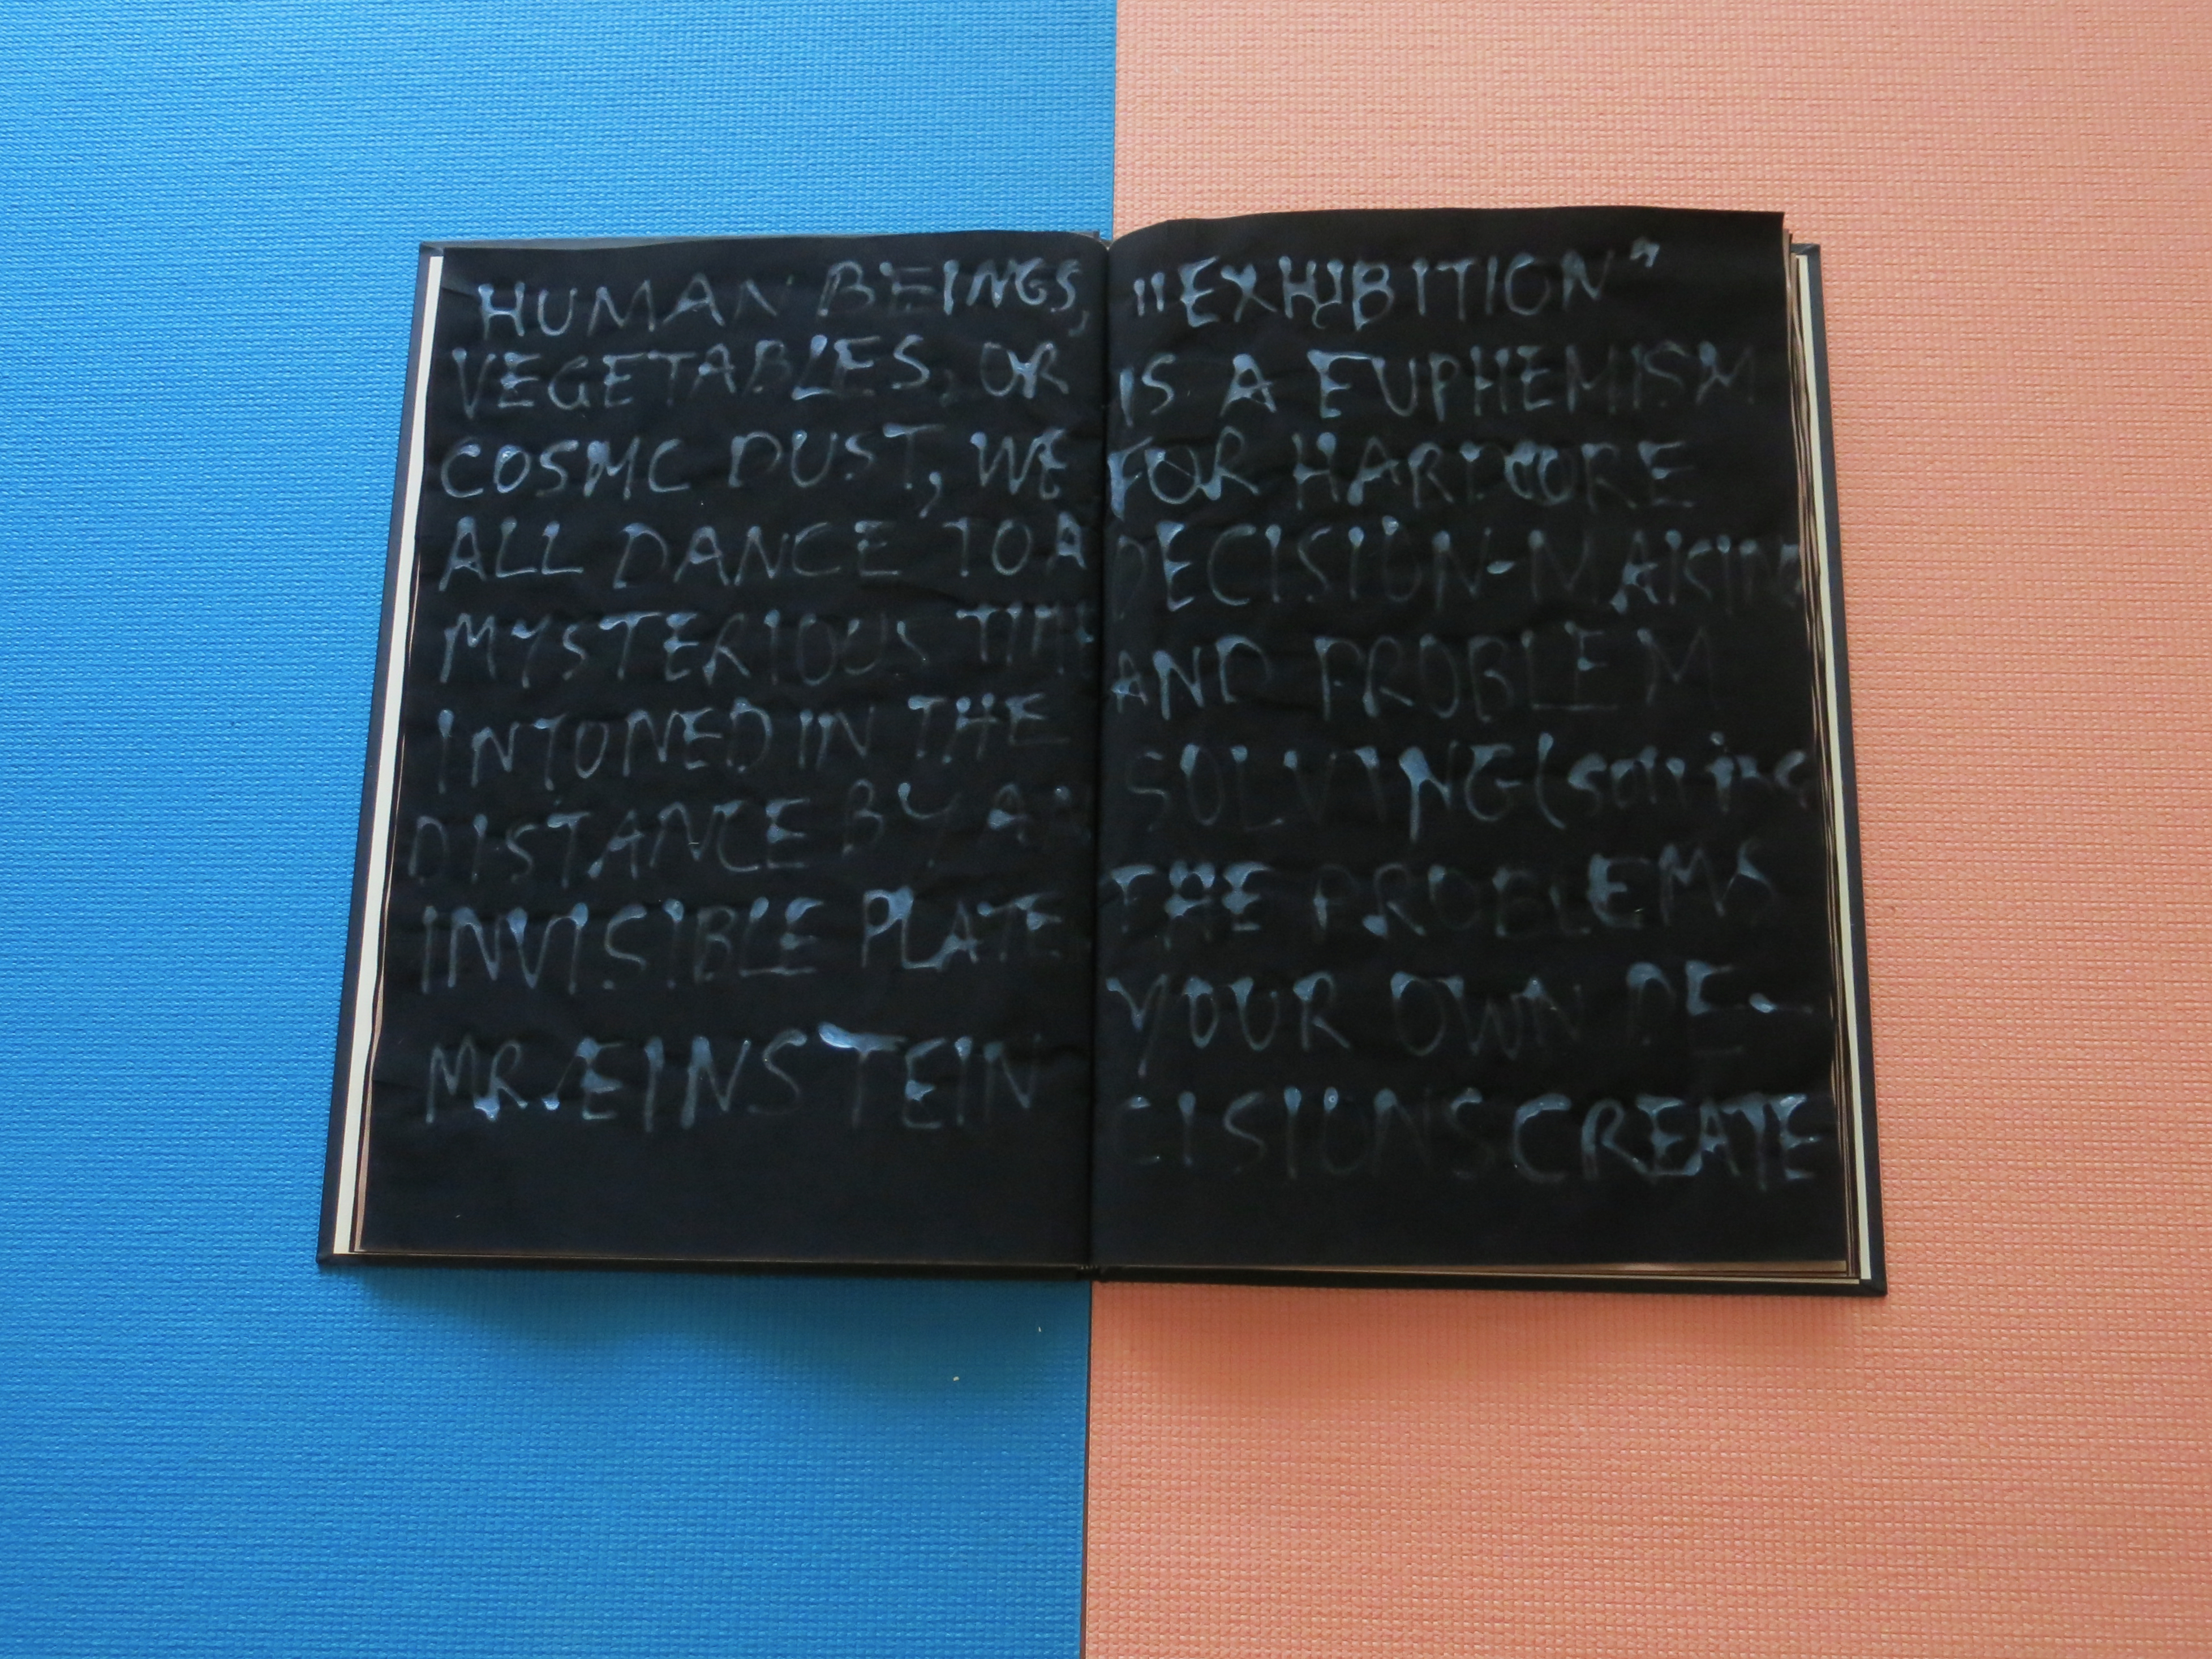 HUMAN BEINGS,
VEGETABLES, OR
COSMC DUST, WE
ALL DANCE TO A
MYSTERIOUS
INTONED IN THE
DISTANCE BY
INVISIBLE PLATE
MR. EINSTEIN
"EXHIBITION"
IS A EUPHEMISM
FOR HARDCORE
DECISION-MAKING
AND PROBLEM
SOLVING (solving
THE PROBLEMS
YOUR OWN DE-
CISIONS CREATE